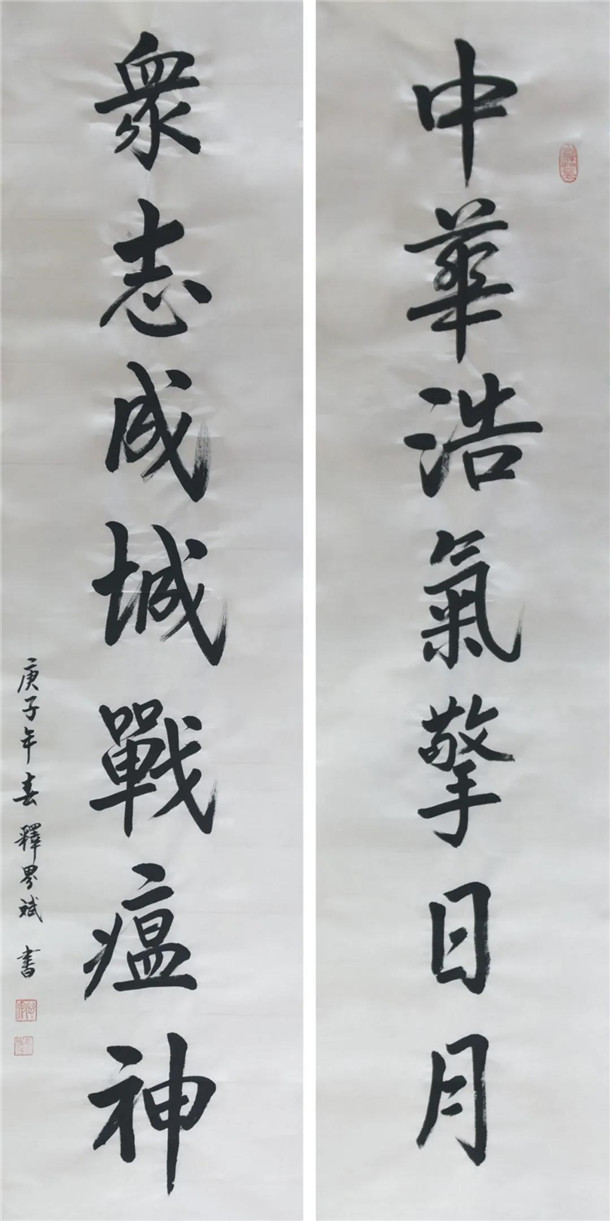 中華浩氣擎日月
衆志成城戰瘟神
庚子年春 釋界斌 書